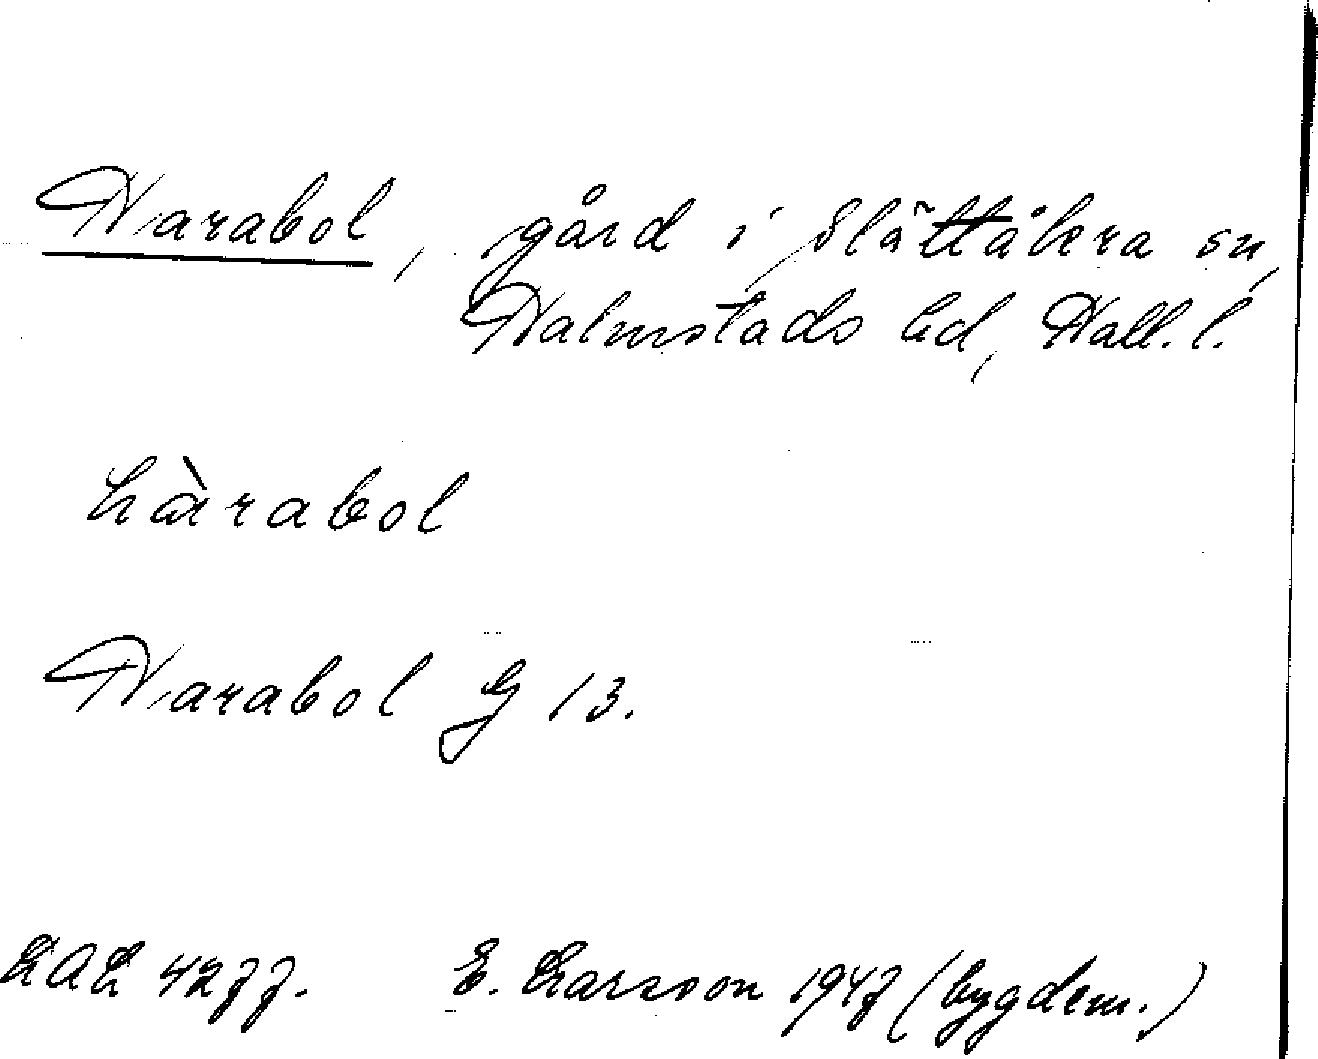 Harabol, gård i Slättåkra sn,
Halmstads hd, Hall. l.
hàrabol
Harabol G 13.
LAL 4277. E. Larsson 1947 (bygdem.)